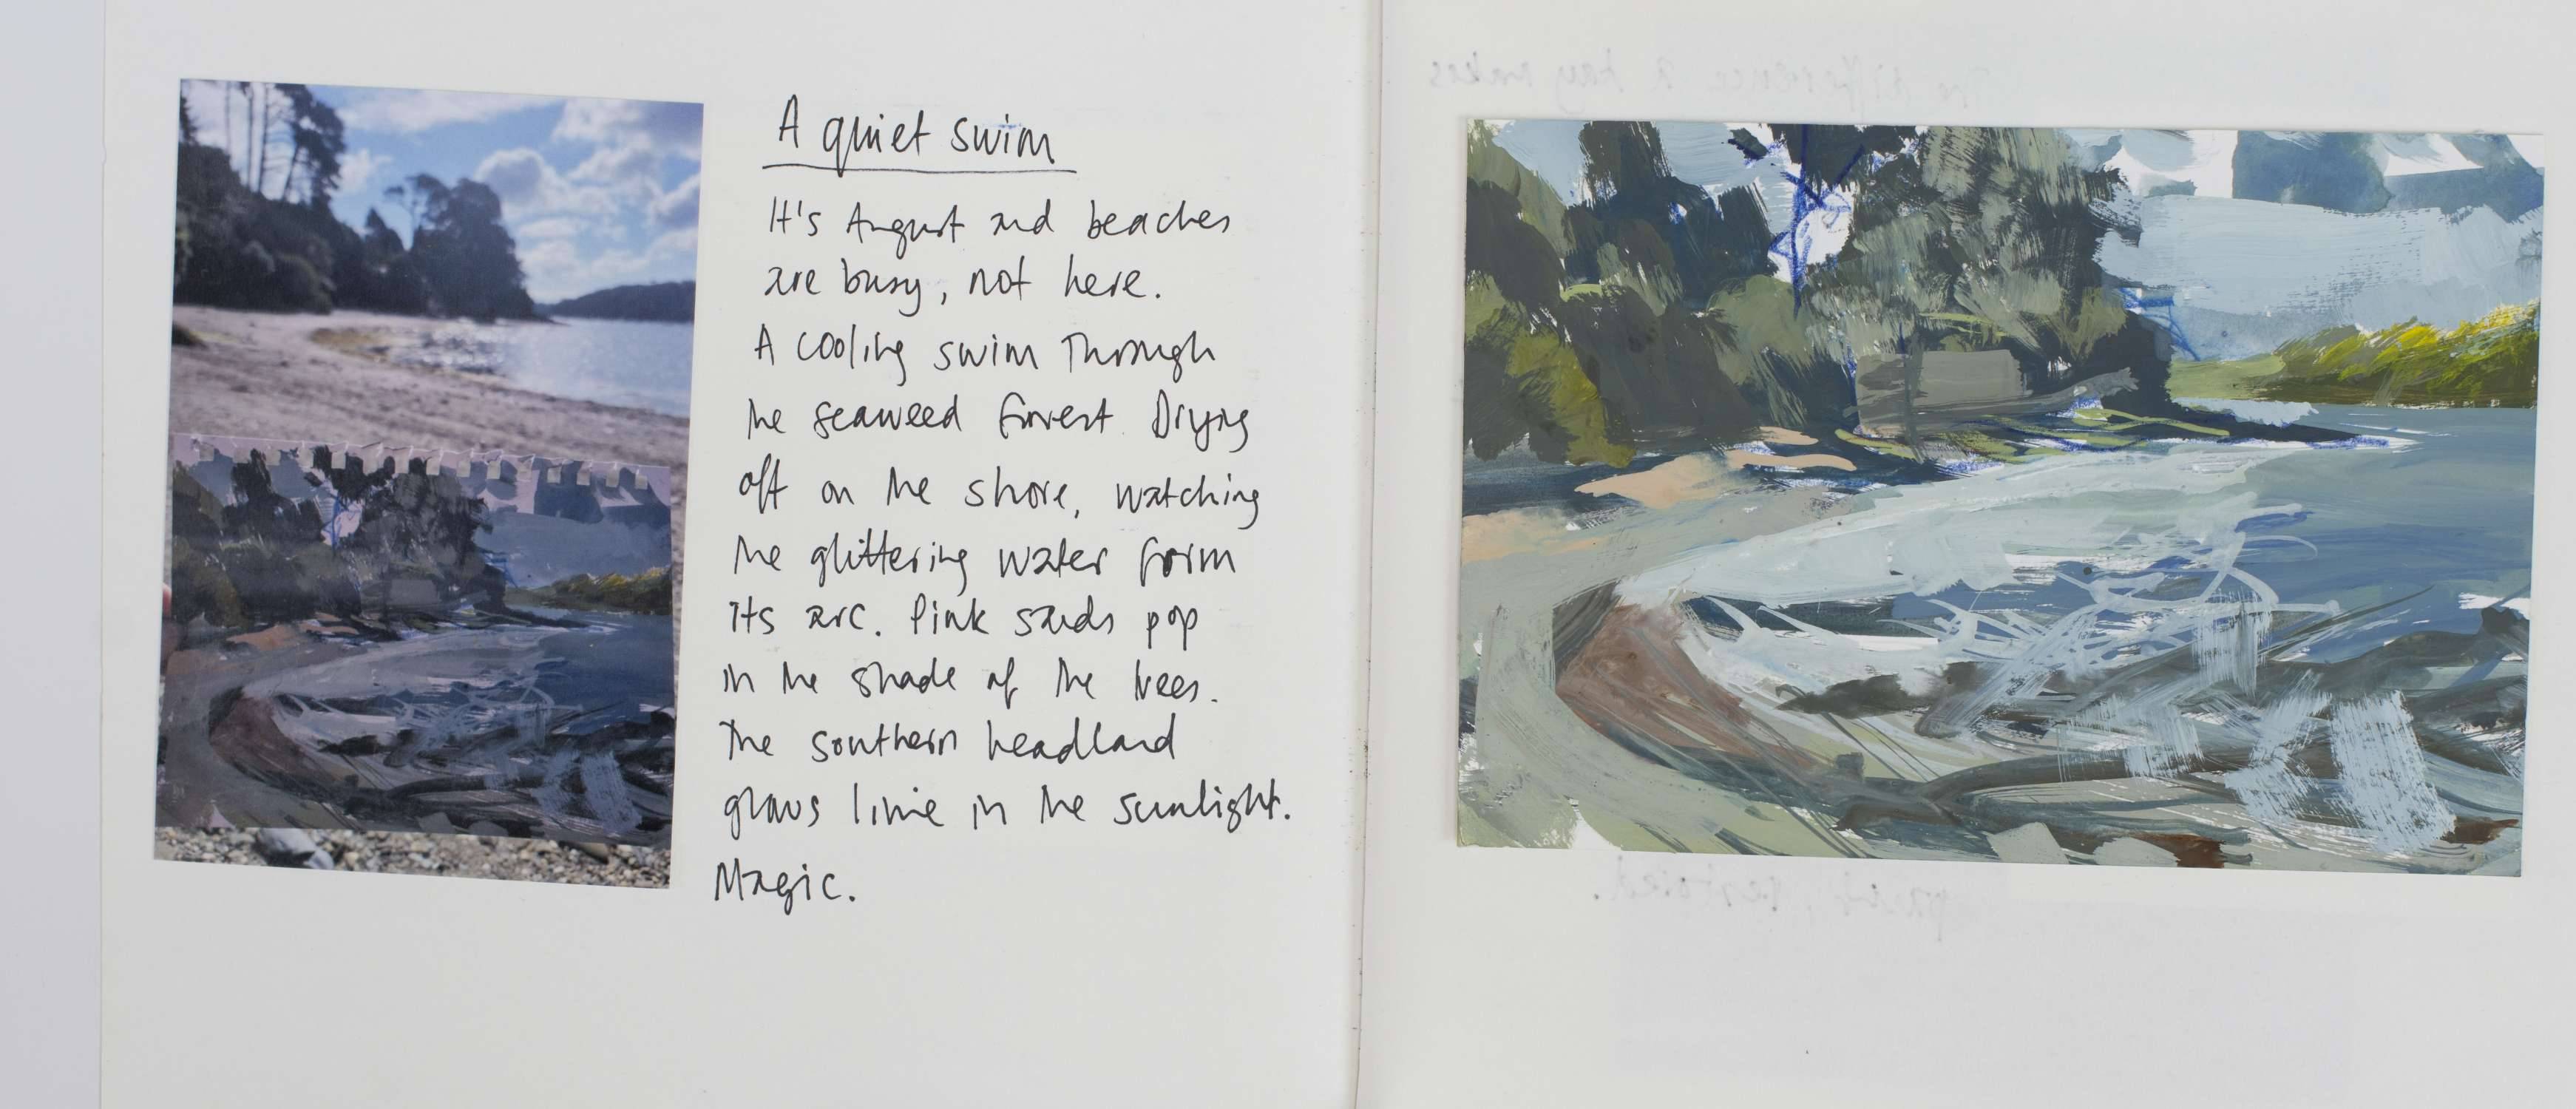 A quiet swim
It's August and beaches
are busy, not here.
A cooling swim Through
the seaweed forest. Drying
off on the shore, watching
the glittering water form
its arc. Pink sands pop
in the shade of the trees.
The southern headland
glows lime in the sunlight.
Magic.
The difference a day makes